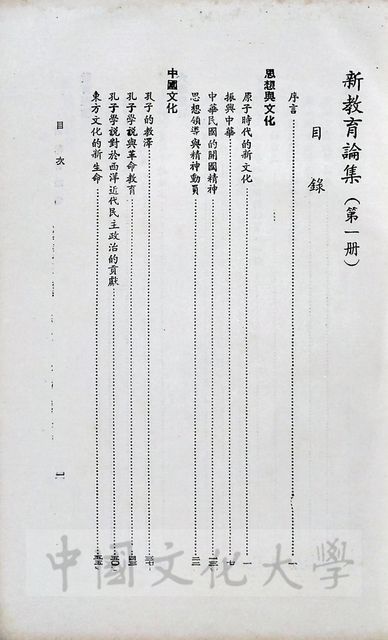 新教育論集(第一册)
目錄
序言……一
思想與文化
原子時代的新文化……一
振興中華……七
中華民國的開國精神……一三
思想領導與精神動員……二二
中國文化
孔子的教澤……三七
孔子學說與革命教育……四三
孔子學說對於西洋近代民主政治的貢獻……五〇
東方文化的新生命……五五
目次
一
中國文化大學